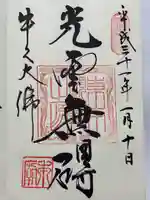 平成三十一年一月十日
光雲無碍
牛久大佛